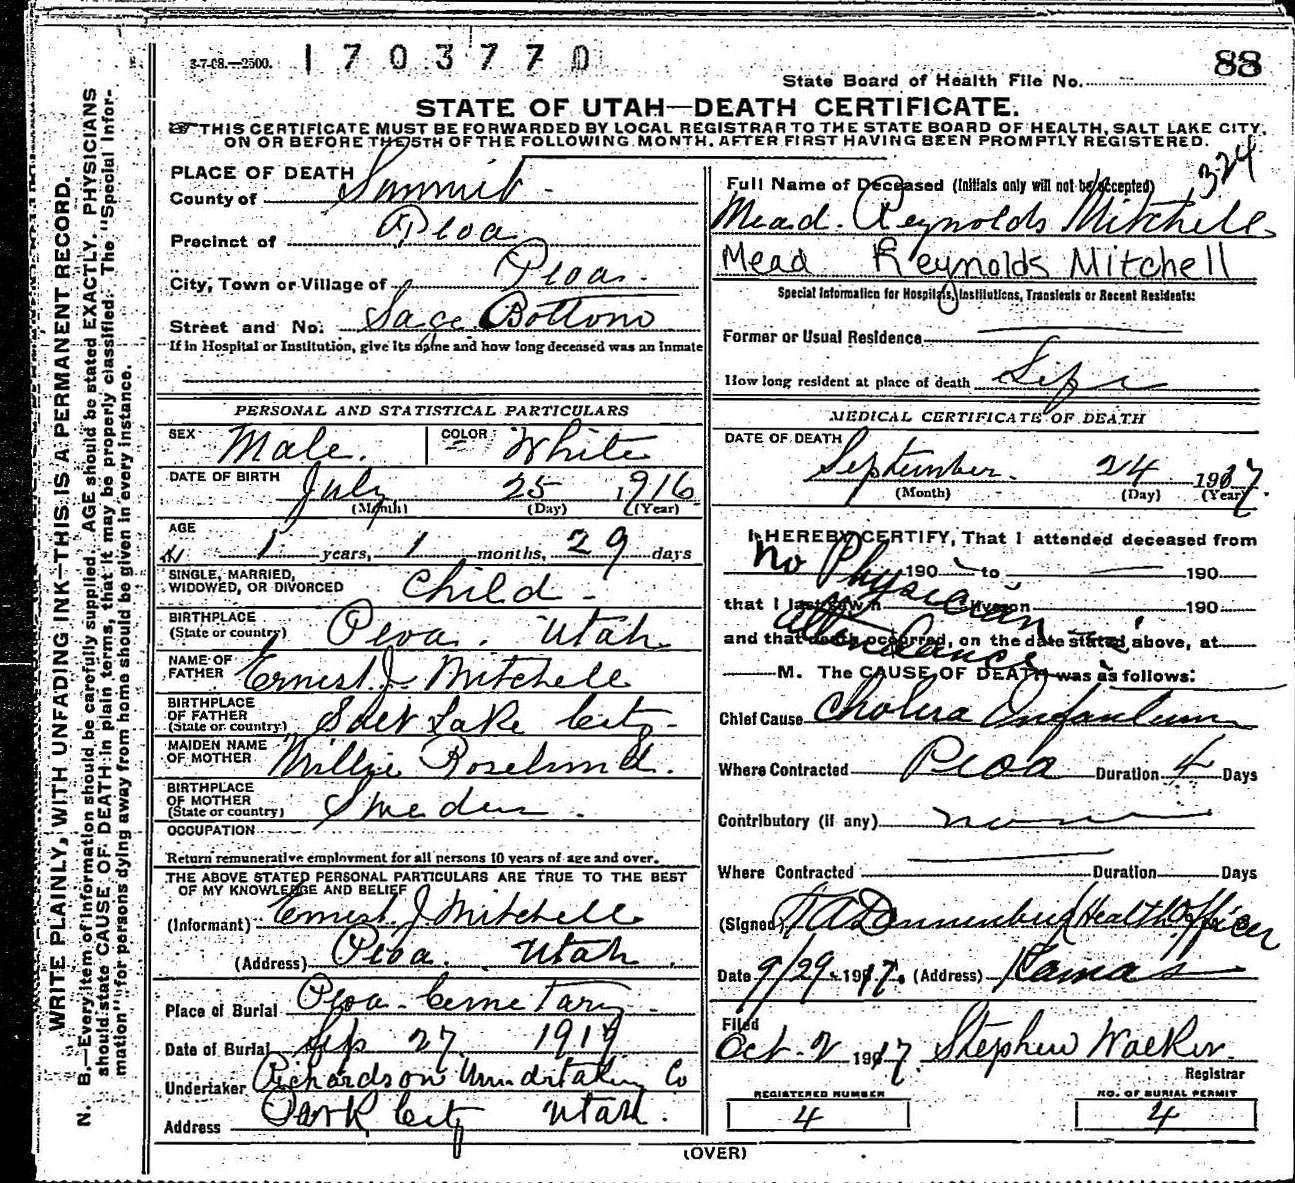 WRITE PLAINLY, WITH UNFADING INK—THIS IS A PERMANENT RECORD.
N. B.—Every item of information should be carefully supplied. AGE should be stated EXACTLY. PHYSICIANS
should state CAUSE OF DEATH in plain terms, that it may be properly classified. The "Special Infor-
mation" for persons dying away from home should be given in every instance.
3-7-08.—2500. 1703770 88
State Board of Health File No.
STATE OF UTAH—DEATH CERTIFICATE.
☞ THIS CERTIFICATE MUST BE FORWARDED BY LOCAL REGISTRAR TO THE STATE BOARD OF HEALTH, SALT LAKE CITY,
ON OR BEFORE THE 5TH OF THE FOLLOWING MONTH, AFTER FIRST HAVING BEEN PROMPTLY REGISTERED.
PLACE OF DEATH
County of Summit
Precinct of Peoa
City, Town or Village of Peoa
Street and No. Sage Bottom
If in Hospital or Institution, give its name and how long deceased was an inmate
324
Full Name of Deceased (Initials only will not be accepted)
Mead Reynolds Mitchell
Mead Reynolds Mitchell
Special Information for Hospitals, Institutions, Transients or Recent Residents:
Former or Usual Residence
How long resident at place of death Life
PERSONAL AND STATISTICAL PARTICULARS
SEX Male. COLOR White
DATE OF BIRTH July 25 1916
(Month) (Day) (Year)
AGE 1 years, 1 months, 29 days
SINGLE, MARRIED,
WIDOWED, OR DIVORCED Child
BIRTHPLACE
(State or country) Peoa. Utah
NAME OF
FATHER Ernest J Mitchell
BIRTHPLACE
OF FATHER
(State or country) Salt Lake City
MAIDEN NAME
OF MOTHER Millie
BIRTHPLACE
OF MOTHER
(State or country) Sweden
OCCUPATION
Return remunerative employment for all persons 10 years of age and over.
THE ABOVE STATED PERSONAL PARTICULARS ARE TRUE TO THE BEST
OF MY KNOWLEDGE AND BELIEF
(Informant) Ernest J Mitchell
(Address) Peoa. Utah.
Place of Burial Peoa Cemetary
Date of Burial Sep 27 1917
Undertaker Richardson Undertaking Co
Address Park City Utah.
MEDICAL CERTIFICATE OF DEATH
DATE OF DEATH September 24 1917.
(Month) (Day) (Year)
I HEREBY CERTIFY, That I attended deceased from
190 to 190
No Physician
that I last saw h alive on 190
attendance
and that death occurred, on the date stated above, at
M. The CAUSE OF DEATH was as follows:
Chief Cause Cholera Infantum
Where Contracted Peoa Duration 4 Days
Contributory (if any) none
Where Contracted Duration Days
(Signed) Health Officer
Date 9/29 1917. (Address) Kamas
Filed
Oct. 2 1917 Stephen Walker
Registrar
REGISTERED NUMBER
4
NO. OF BURIAL PERMIT
4
(OVER)